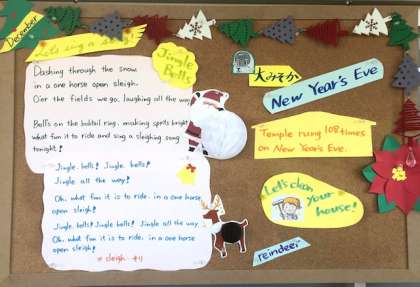 Desember
Let's sing a song!
Jingle
Bells
Dashing through the snow
in a one horse open sleigh.
O'er the fields we go, laughing all the way
Bells on the bobtail ring, making spirits bright
what fun it to ride and sing a sleighing song
tonight!
Jingle bells! Jingle bells!
Jingle all the way!
Oh, what fun it is to ride, in a one horse
open sleigh!
Jingle bells! Jingle bells! Jingle all the way,
Oh, what fun it is to ride, in a one horse
open sleigh!
※ sleigh そり
大みそか
New Year's Eve
Temple rung 108 times
on New Years Eve.
Let's clean
Your
house!
reindeer